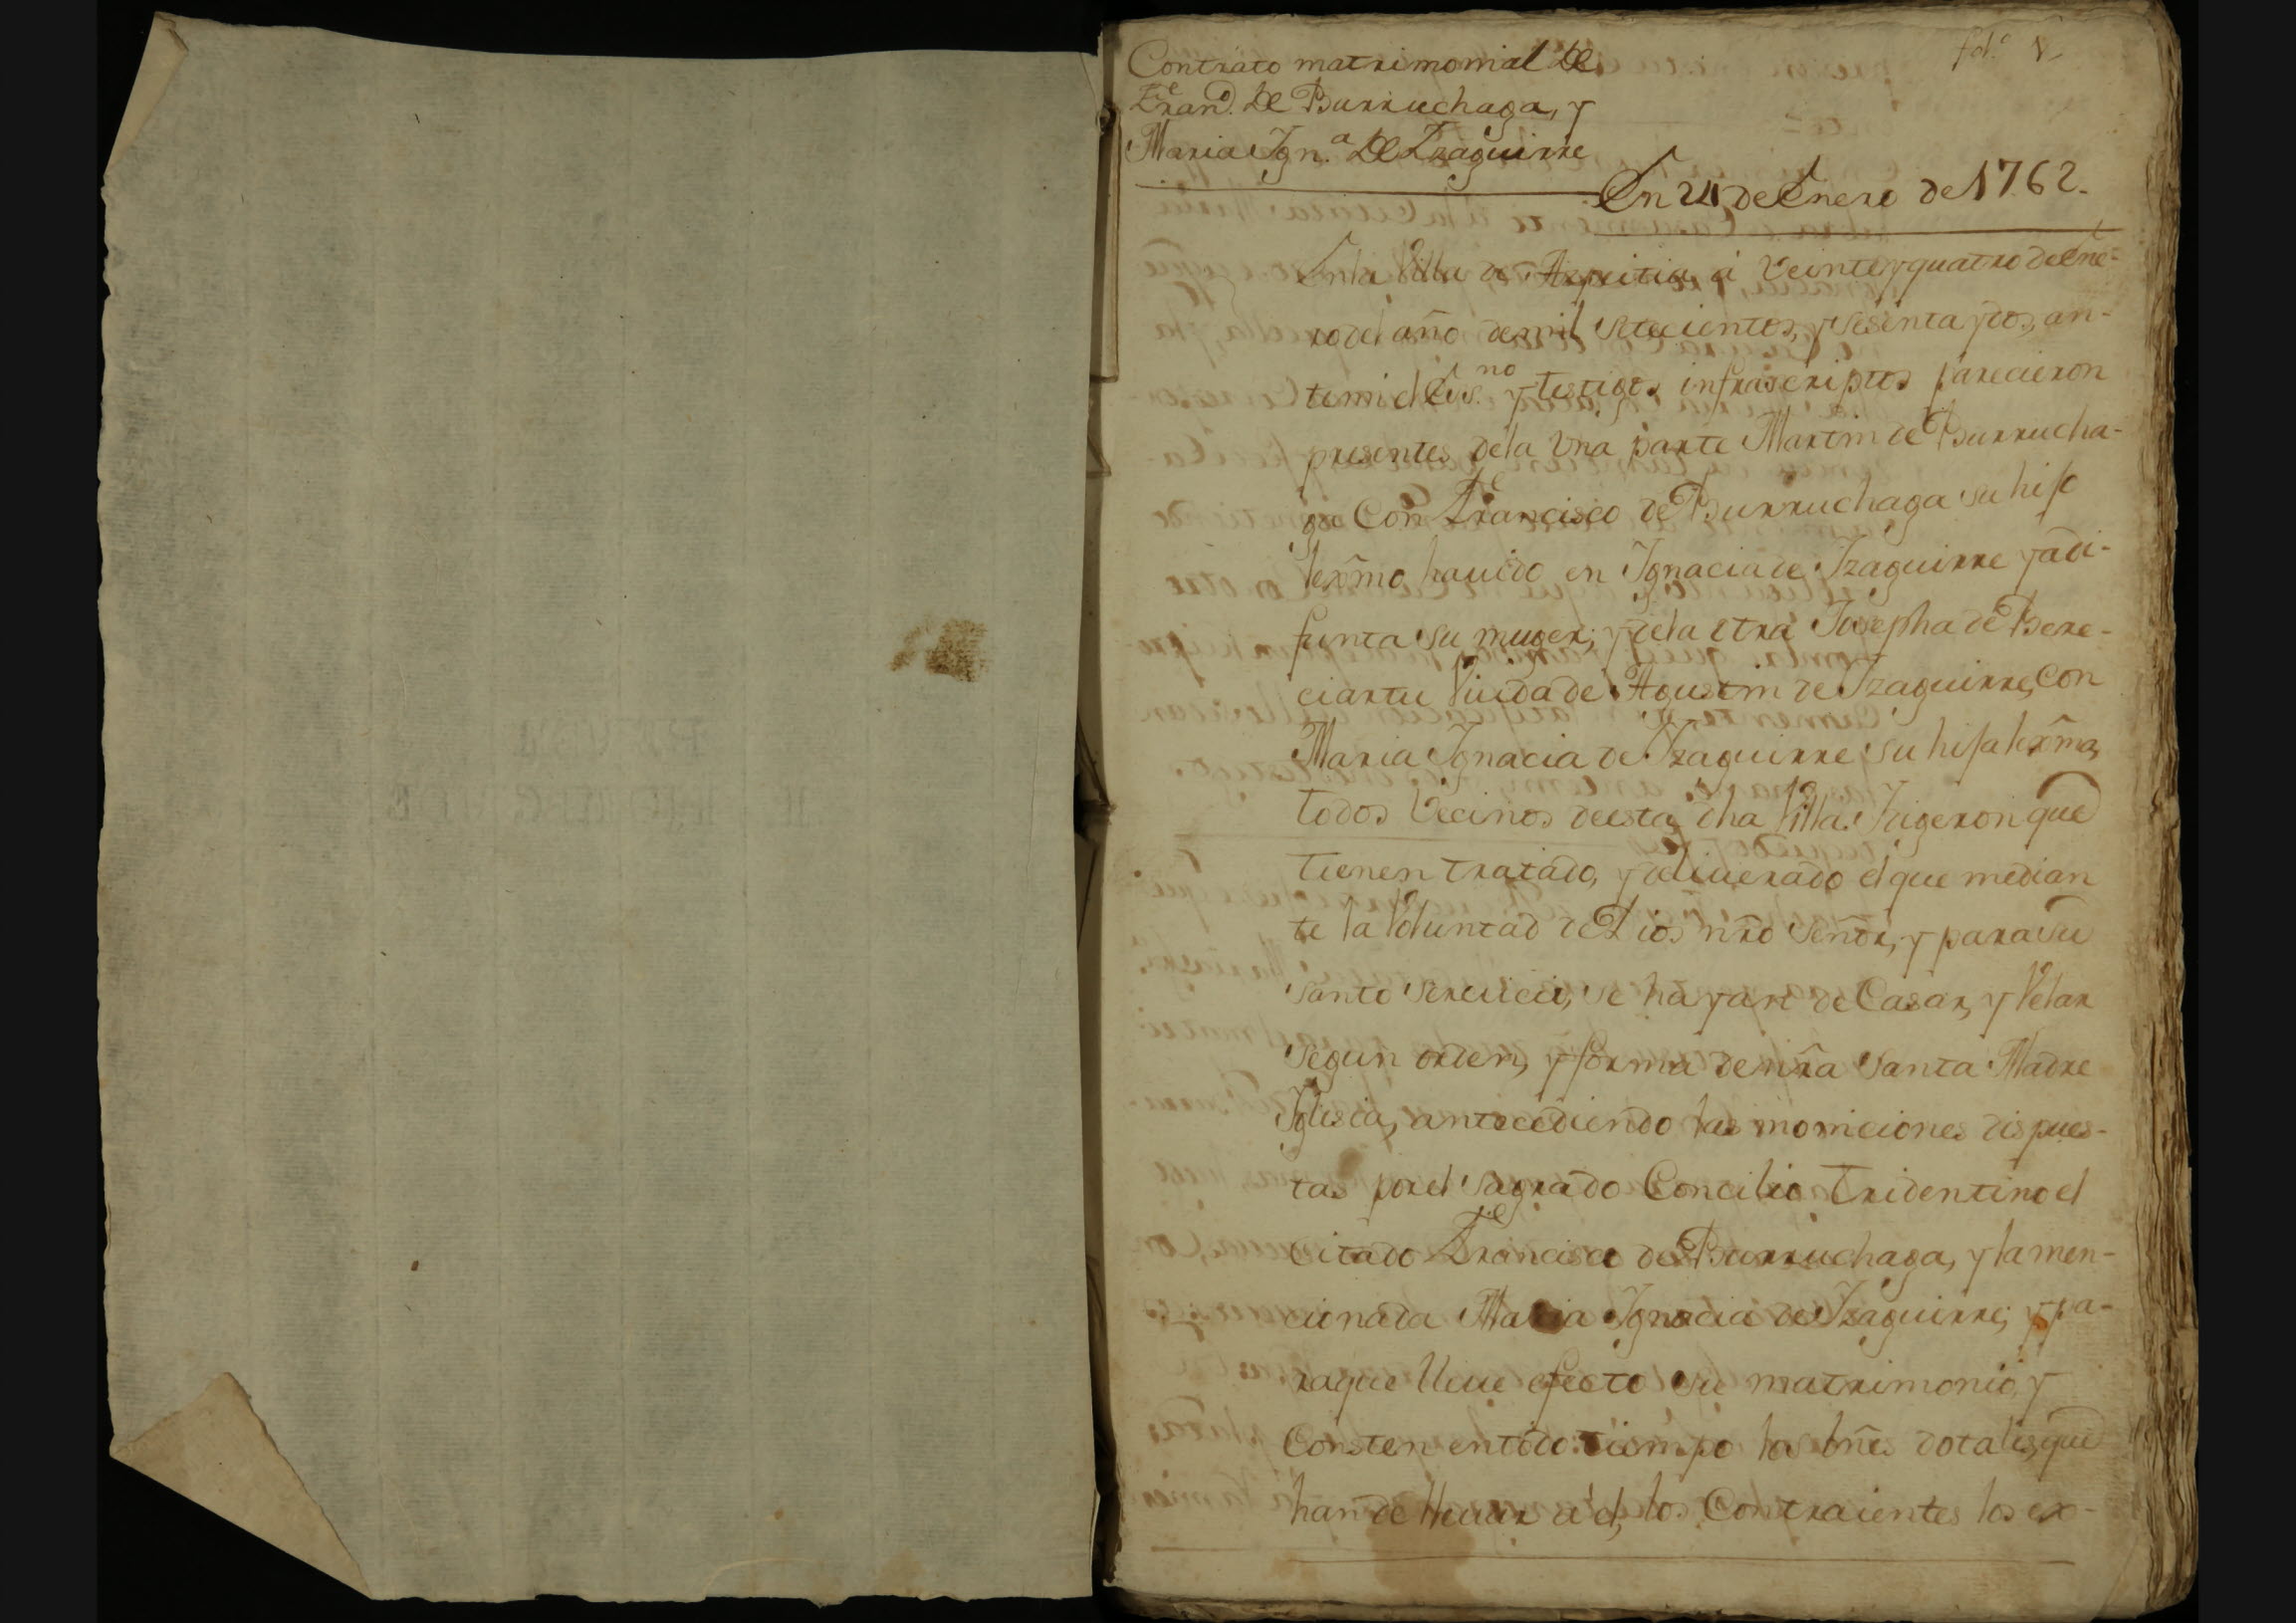 fol.º 1
Contrato matrimonial de
Franᶜᵒ. de Burruchaga, y
Maria Ign.ª de Izaguirre
En 24 de Enero de 1762.
En la Villa de Azpeitia, á Veinte y quatro de Ene-
ro del año de mil setecientos, y sesenta y dos, an-
te mi el Es.ⁿᵒ y testigos infrascriptos parecieron
presentes, de la Una parte Martin de Burrucha-
ga con Francisco de Burruchaga su hijo
lexm̃o havido en Ignacia de Izaguirre ya di-
funta su muger; y de la otra Josepha de Bere-
ciartu Viuda de Agustin de Izaguirre, con
Maria Ignacia de Yzaguirre su hija lexm̃a,
todos Vecinos de esta dha Villa. Digeron que
tienen tratado, y deliverado el que median
te la Voluntad de Dios nr̃o Señor, y para su
santo servicio, se hayan de Casar, y Velar
segun orden, y forma de nr̃a Santa Madre
Yglesia, antecediendo las moniciones dispues-
tas por el sagrado Concilio Tridentino el
citado Francisco de Burruchaga, y la men-
cionada Maria Ignacia de Izaguirre; y pa-
ra que lleve efecto su matrimonio, y
Consten en todo tiempo los bñes dotales, que
han de llevar á el, los Contraientes los ex-